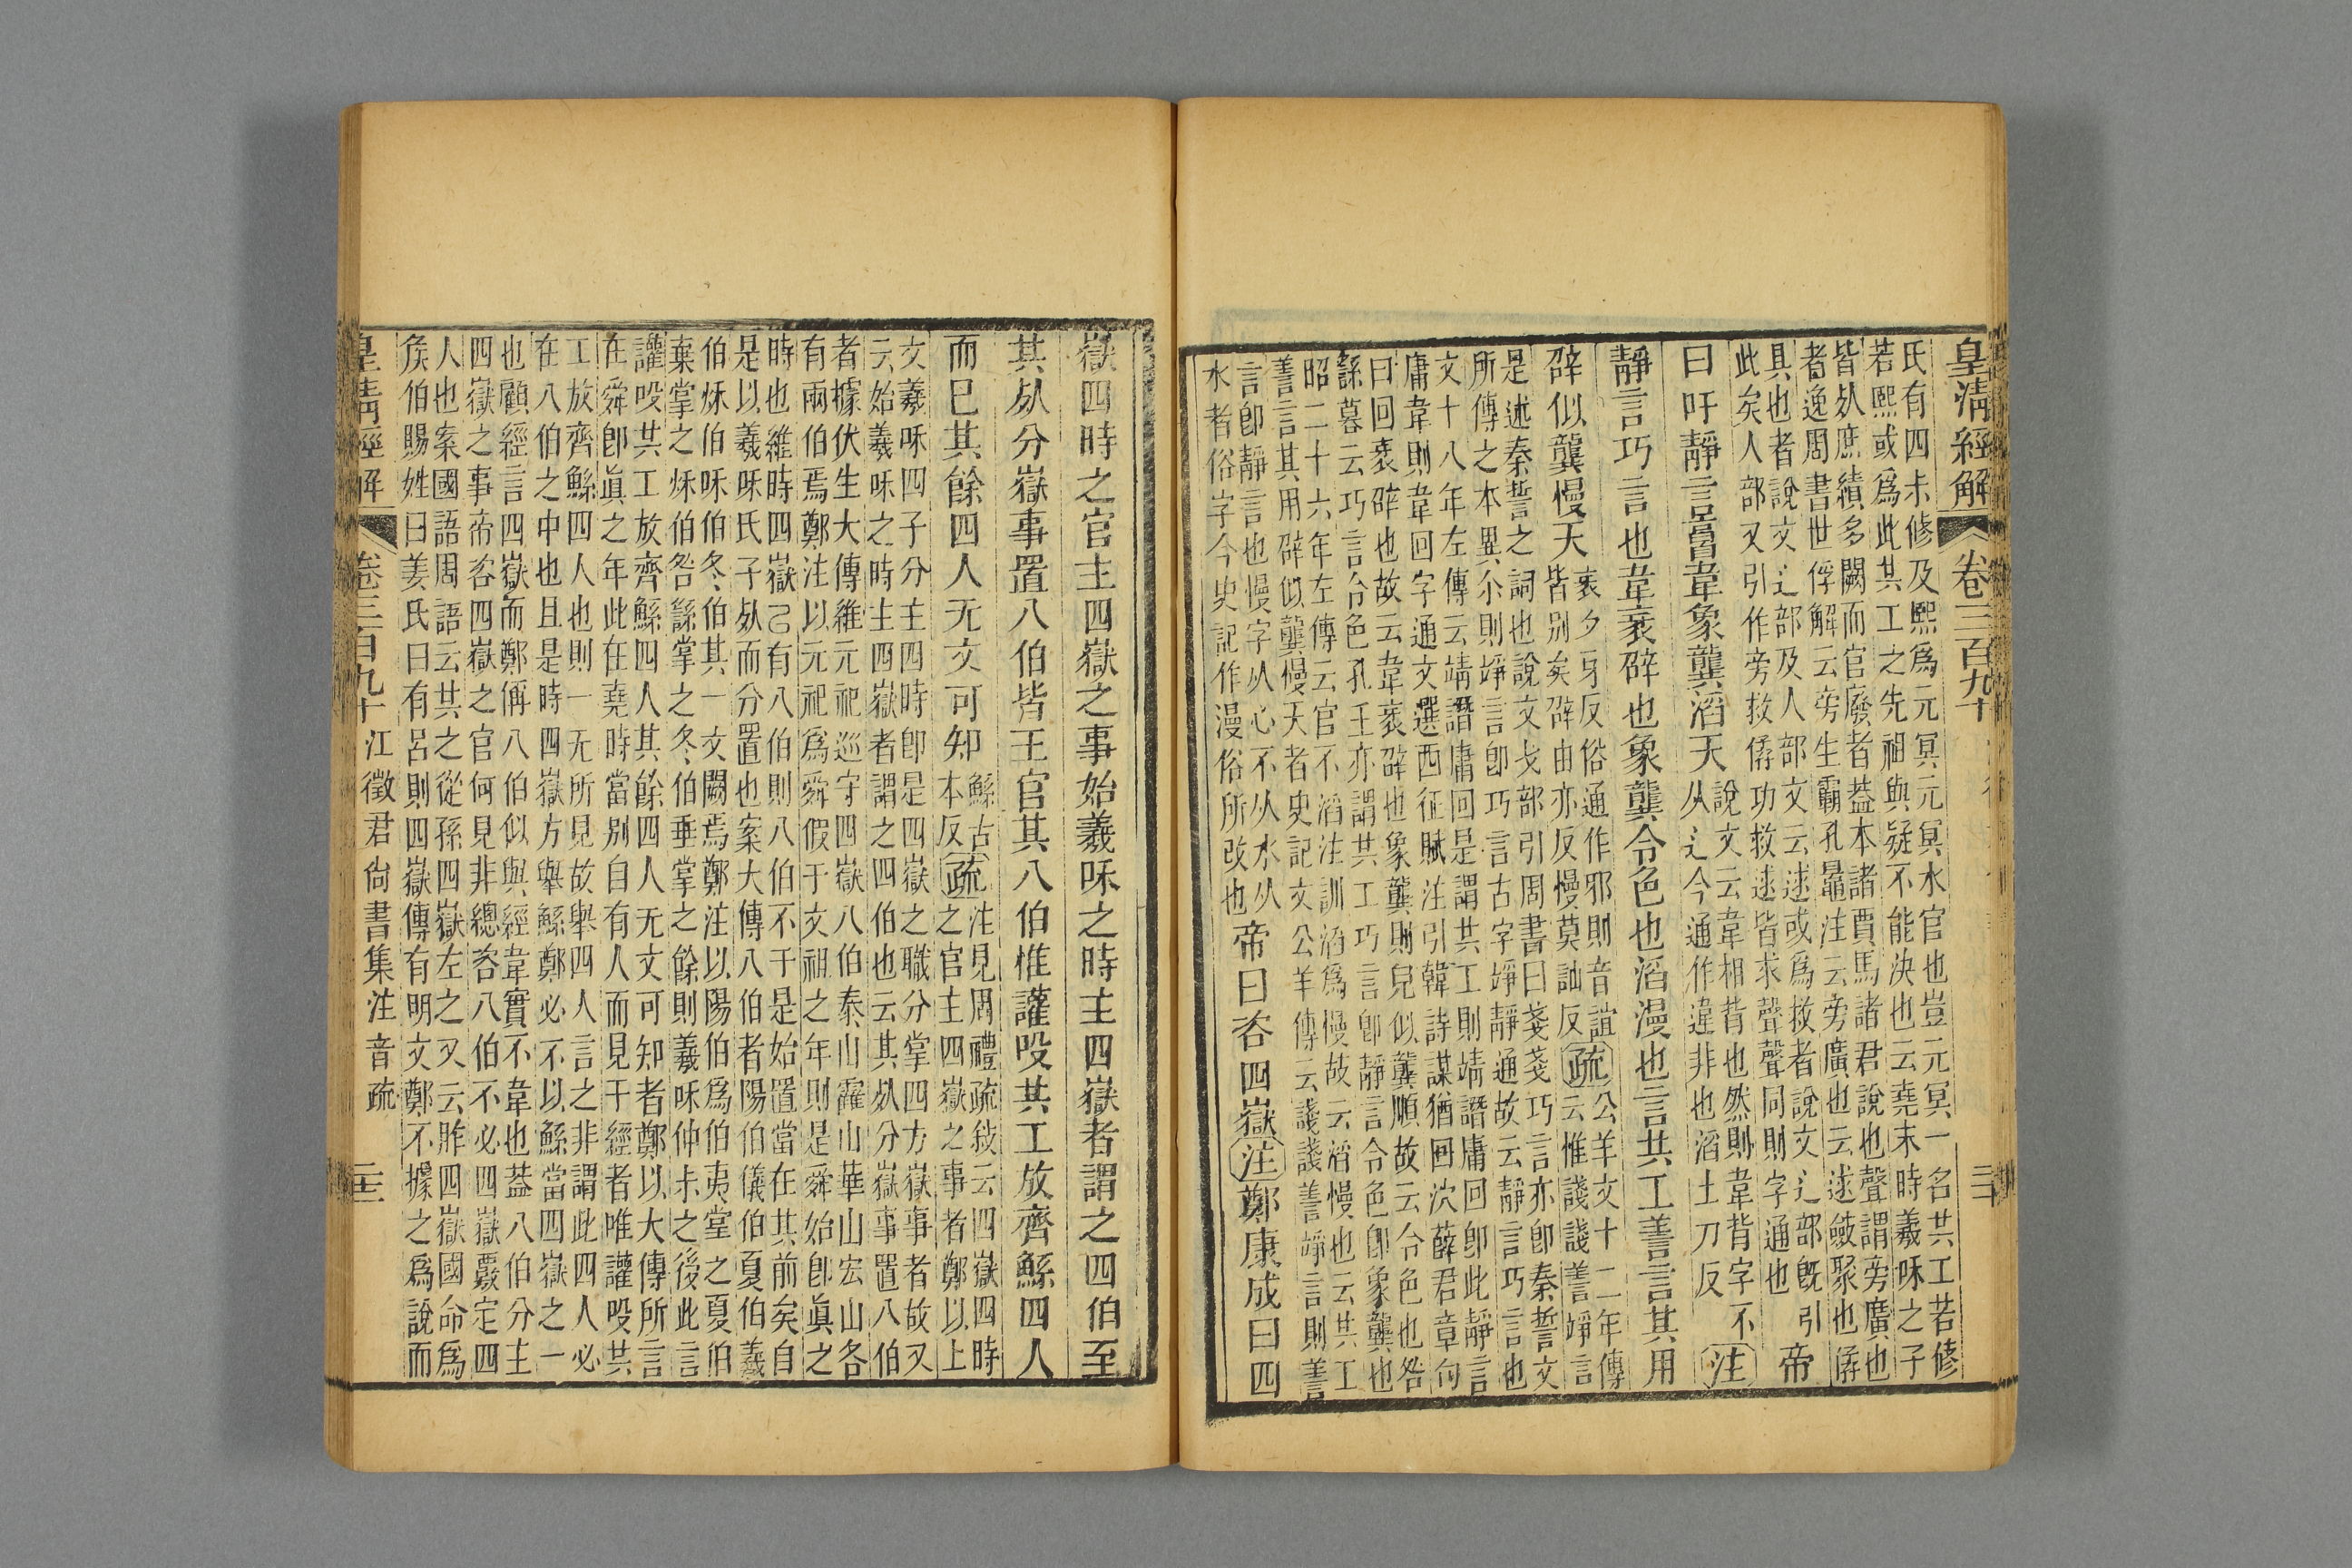 皇淸經解 卷三百九十 二十
氏有四未修及熙爲元冥元冥水官也豈元冥一名共工若修
若熙或爲此其工之先祖與疑不能決也云堯末時羲咊之子
皆𠛱庶績多闕而官廢者葢本諸賈馬諸君說也聲謂㫄廣也
者逸周書世俘解云㫄生霸孔鼂注云㫄廣也云逑斂聚也僝
具也者說文辵部及人部文云逑或爲救者說文辵部旣引
此矣人部又引作㫄救僝功救逑皆求聲聲同則字通也
帝
曰吁靜言𠹉韋象龔滔天
說文云韋相背也然則韋背字不
从辵今通作違非也滔土刀反
注
靜言巧言也韋衺辟也象龔令色也滔漫也言共工善言其用
辟似龔慢天
衺夕牙反俗通作邪則音誼
皆別矣辟由亦反慢莫訕反
疏
公羊文十二年傳
云惟諓諓善竫言
是述秦誓之詞也說文戈部引周書曰戔戔巧言亦卽秦誓文
所傳之本異尒則竫言卽巧言古字竫靜通故云靜言巧言也
文十八年左傳云靖譖庸回是謂共工則靖譖庸回卽此靜言
庸韋則韋回字通文選西征賦注引韓詩謀猶回泬薛君章句
曰回衺辟也故云韋衺辟也象龔則皃似龔順故云令色也咎
繇暮云巧言令色孔壬亦謂共工巧言卽靜言令色卽象龔也
昭二十六年左傳云官不滔注訓滔爲慢故云滔慢也云共工
善言其用辟似龔慢天者史記文公羊傳云諓諓善竫言則善
言卽靜言也慢字从心不从水从
水者俗字今史記作漫俗所改也
帝曰咨四嶽注鄭康成曰四
嶽四時之官主四嶽之事始羲咊之時主四嶽者謂之四伯至
其𠛱分嶽事置八伯皆王官其八伯惟讙吺共工放齊鯀四人
而已其餘四人无文可知
鯀古
本反
疏
注見周禮疏敍云四嶽四時
之官主四嶽之事者鄭以上
文羲咊四子分主四時卽是四嶽之職分掌四方嶽事者故又
云始羲咊之時主四嶽者謂之四伯也云其𠛱分嶽事置八伯
者據伏生大傳維元祀巡守四嶽八伯泰山霍山華山宏山各
有兩伯焉鄭注以元祀爲舜假于文祖之年則是舜始卽眞之
時也維時四嶽已有八伯則八伯不于是始置當在其前矣自
是以羲咊氏子𠛱而分置也案大傳八伯者陽伯儀伯夏伯羲
伯秌伯咊伯冬伯其一文闕焉鄭注以陽伯爲伯夷掌之夏伯
棄掌之秌伯咎繇掌之冬伯垂掌之餘則羲咊仲未之後此言
讙吺共工放齊鯀四人其餘四人无文可知者鄭以大傳所言
在舜卽眞之年此在堯時當別自有人而見于經者唯讙吺共
工放齊鯀四人也則一无所見故舉四人言之非謂此四人必
在八伯之中也且是時四嶽方舉鯀鄭必不以鯀當四嶽之一
也顧經言四嶽而鄭偁八伯似與經韋實不韋也葢八伯分主
四嶽之事帝咨四嶽之官何見非總咨八伯不必四嶽覈定四
人也案國語周語云共之從孫四嶽左之又云胙四嶽國命爲
矦伯賜姓曰姜氏曰有呂則四嶽傳有明文鄭不據之爲說而
皇淸經解 卷三百九十 江徵君尙書集注音疏 二十一